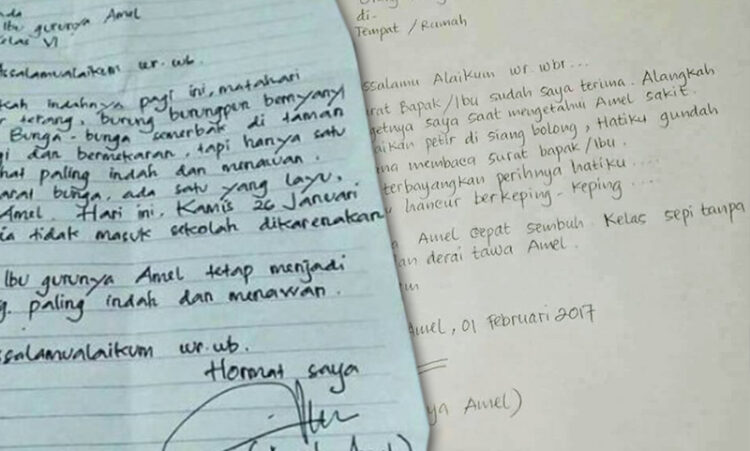 Ibu gurunya Amel
VI
wr. wb.
indahnya pagi ini, matahari
terang, burung burungpun bernyanyi
Bunga-bunga semerbak di taman
dan bermekaran, tapi hanya satu
paling indah dan menawan.
bunga, ada satu yang layu,
Amel. Hari ini, Kamis 26 Januari
tidak masuk sekolah dikarenakan
Ibu gurunya Amel tetap menjadi
paling indah dan menawan.
wr. wb.
Hormat saya
di-
Tempat / Rumah
Alaikum wr. wbr...
Bapak/Ibu sudah saya terima. Alangkah
saya saat mengetahui Amel sakit.
petir di siang bolong, Hatiku gundah
membaca surat bapak/Ibu.
terbayangkan perihnya hatiku....
hancur berkeping-keping....
Amel cepat sembuh. Kelas sepi tanpa
derai tawa Amel.
Amel, 01 Februari 2017
Amel)